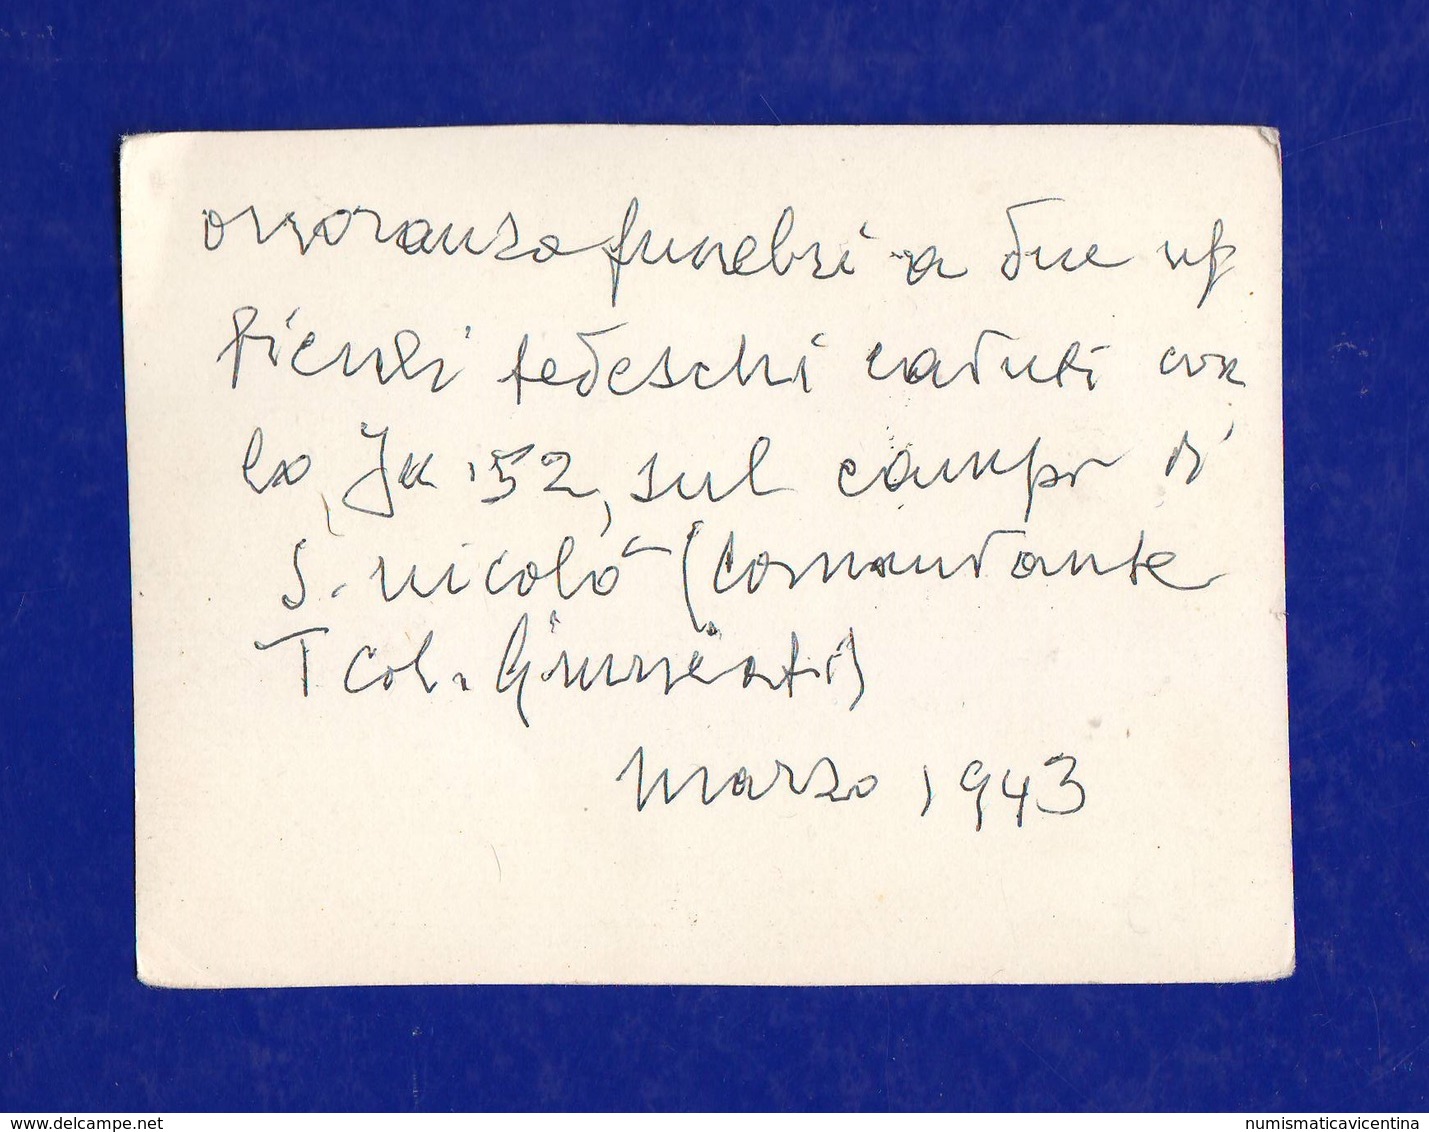 onoranza funebri a due uf
ficiali tedeschi caduti con
lo Ju 52, sul campo di
S. Nicolò (Comandante
T Col. Giunieati)
marzo 1943
numismaticavicentina